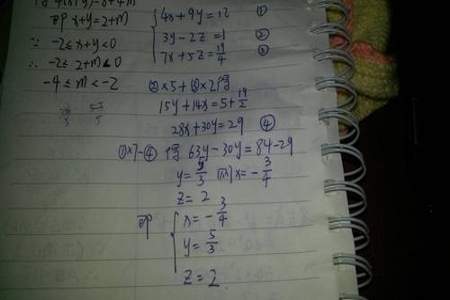 即 x+y=2+m
∵ -2≤x+y<0
∴ -2≤2+m<0
-4≤m<-2
4x+9y=12 ①
3y-2z=1 ②
7x+5z=19/4 ③
②×5+③×2得
15y+14x=5+19/2
28x+30y=29 ④
①×7-④ 得 63y-30y=84-29
y=5/3 则x=-3/4
z=2
即
x=-3/4
y=5/3
z=2